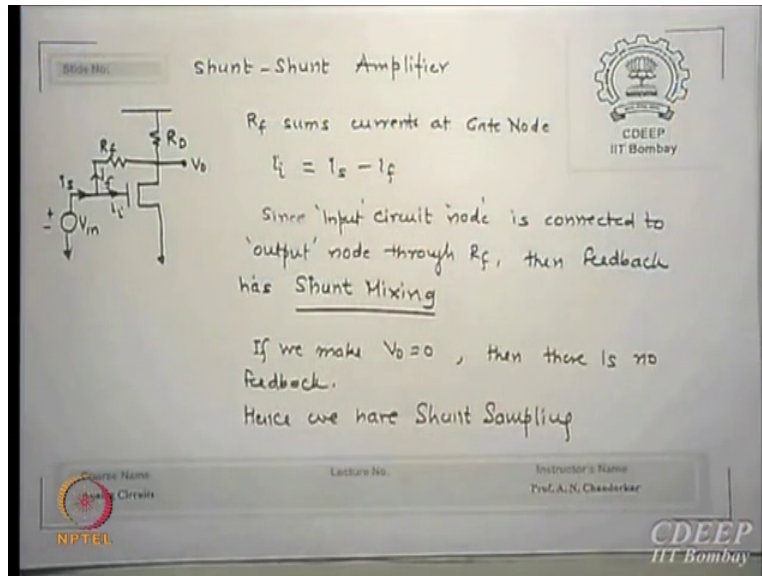 Slide No:
Shunt-Shunt Amplifier
CDEEP
IIT Bombay
RD
Rf
VO
Is
If
Ii
+
-
Vin
Rf sums currents at Gate Node
Ii = Is - If
Since 'Input' Circuit 'node' is connected to
'output' node through Rf, then feedback
has Shunt Mixing
If we make VO = 0, then there is no
feedback.
Hence we have Shunt Sampling
Course Name
Lecture No.
Instructor's Name
Circuits
Prof. A. N. Chandorkar
NPTEL
CDEEP
IIT Bombay